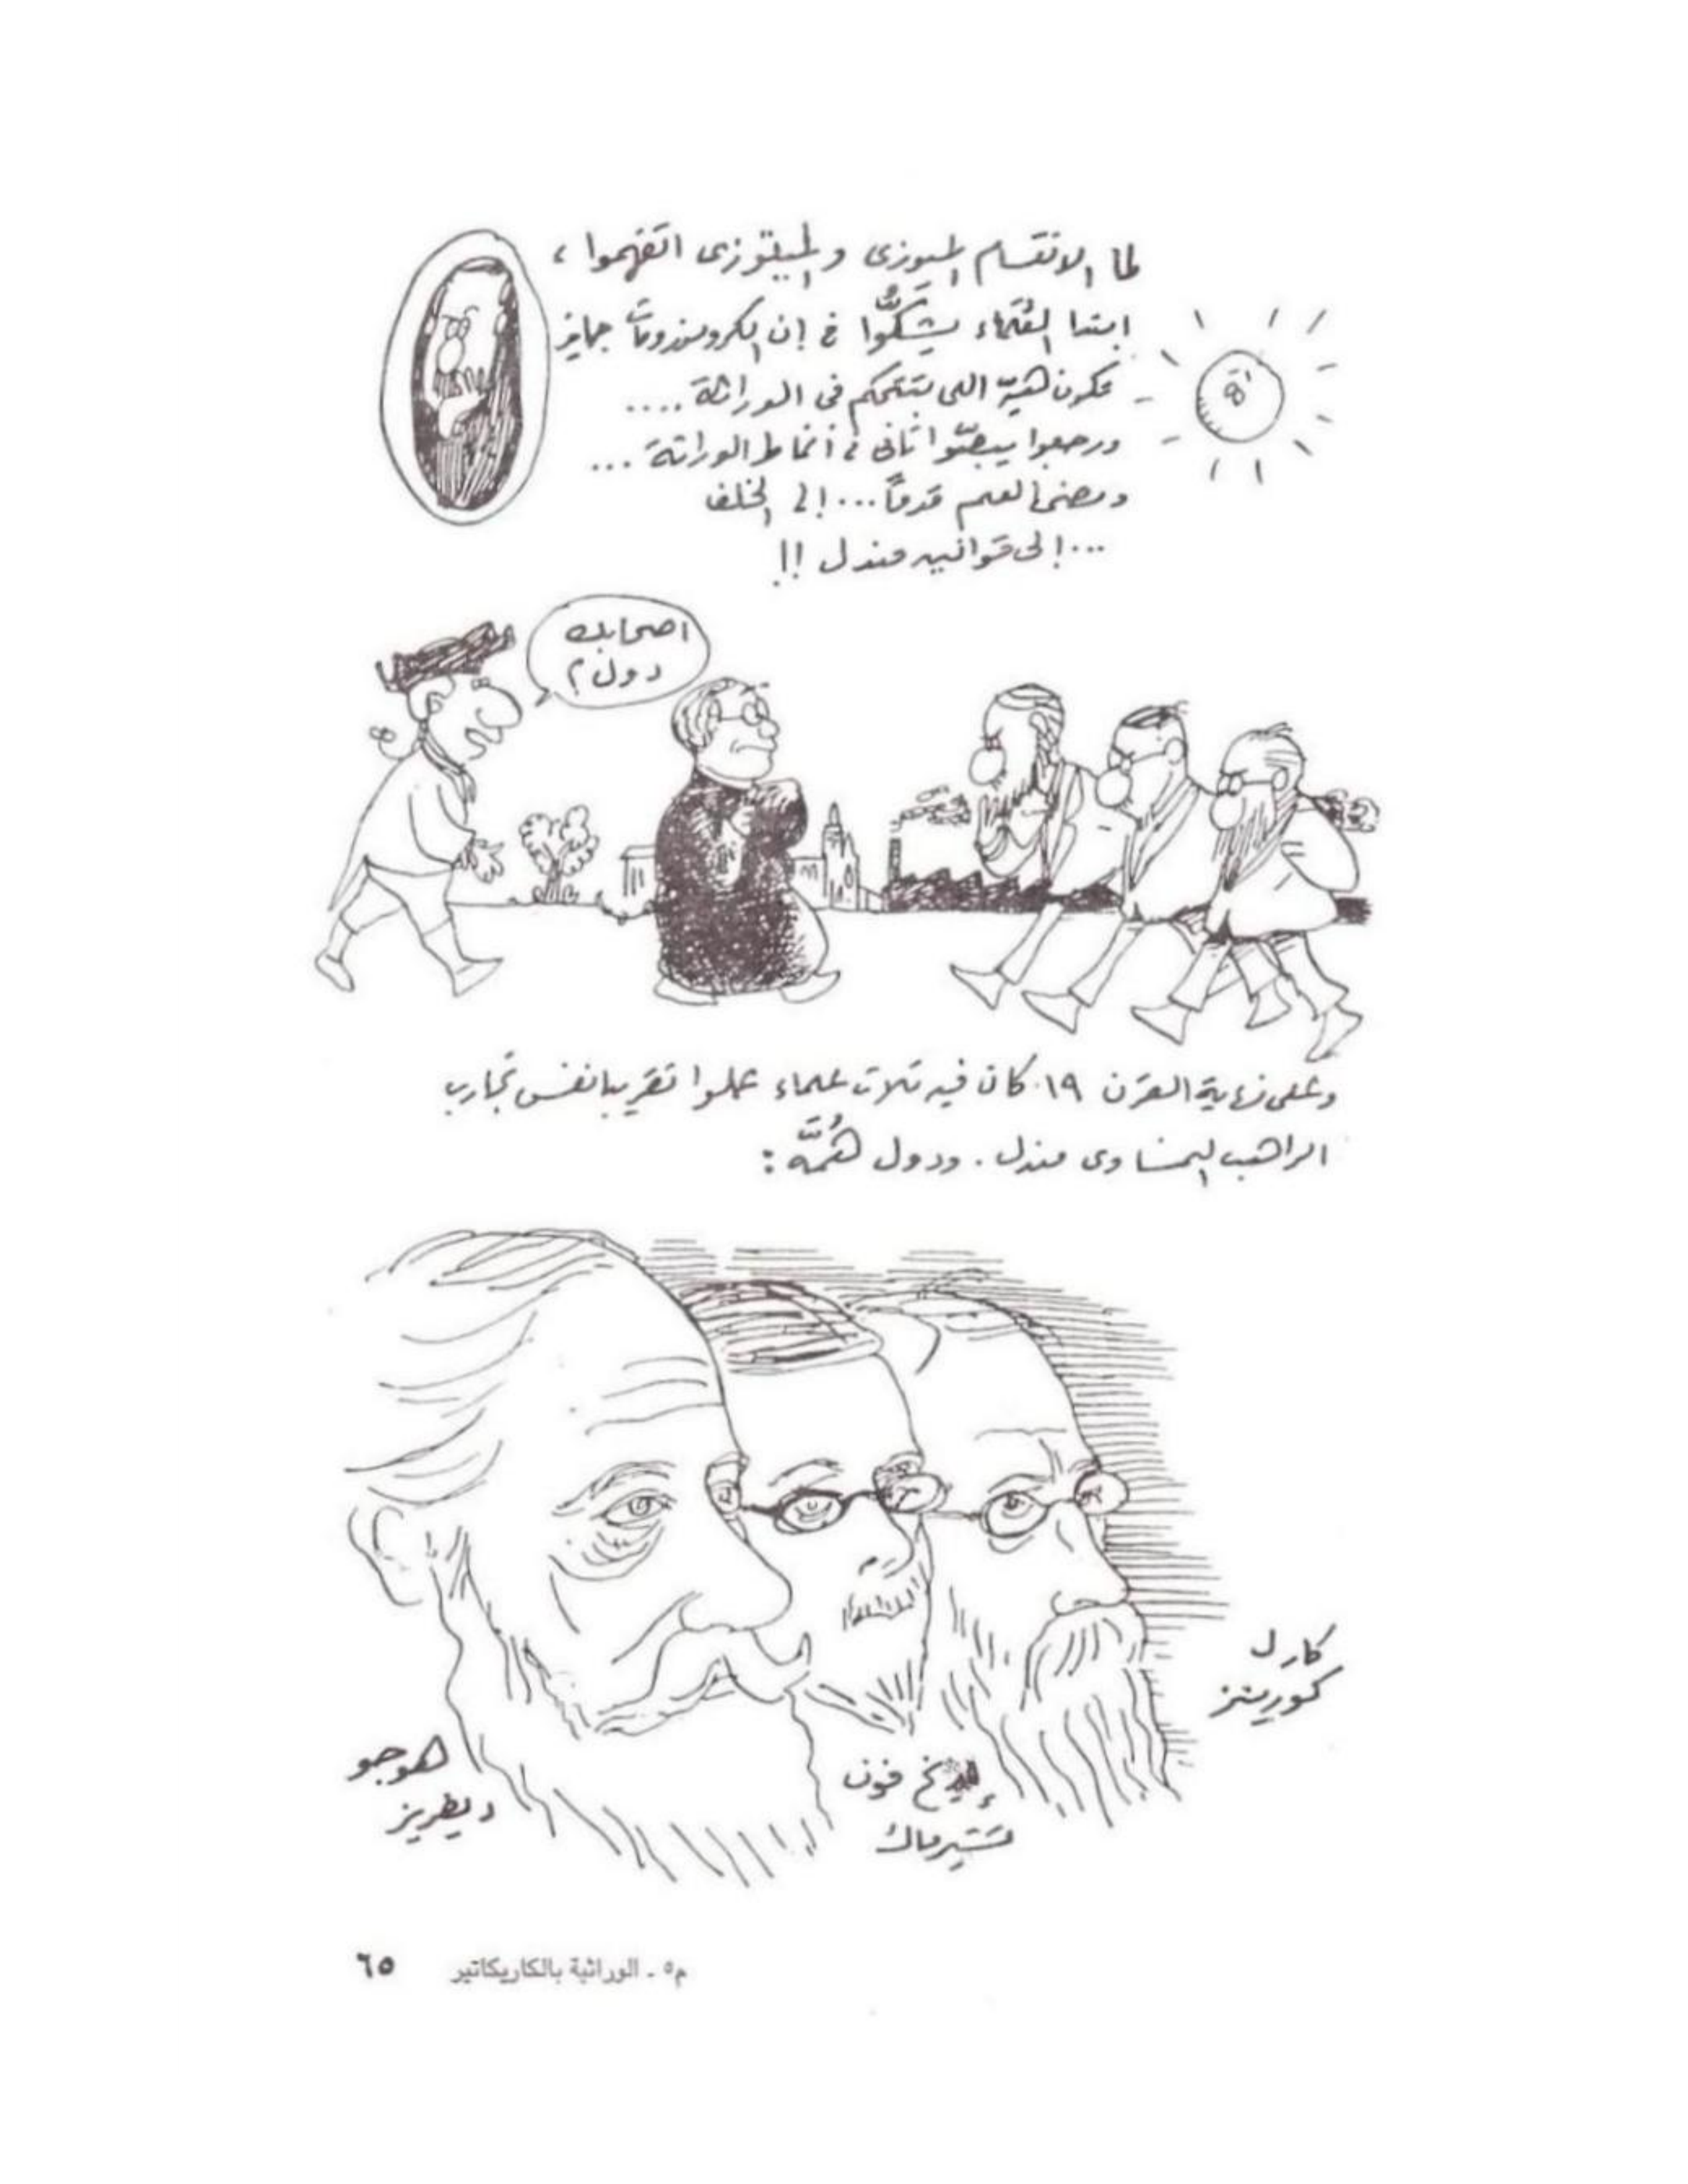 لما الانقسام الميوزى والميتوزى اتفهموا،
ابتدا العُلَماء يِشُكُّوا فى إن الكروموزومات جايز
تكون هيّه اللى بتتحكم فى الوراثة ....
ورجعوا يبصّوا تانى فى أنماط الوراثة ...
ومضى العلم قدماً ... إلى الخلف
... إلى قوانين مندل !!
اصحابك
دول؟
وعلى نهاية القرن ١٩ كان فيه تلات علماء عملوا تقريبا نفس تجارب
الراهب النمساوى مندل. ودول هُمَّه :
كارل
كورينز
فون
تشيرماك
هوجو
ديفريز
م٥ ـ الوراثية بالكاريكاتير ٦٥